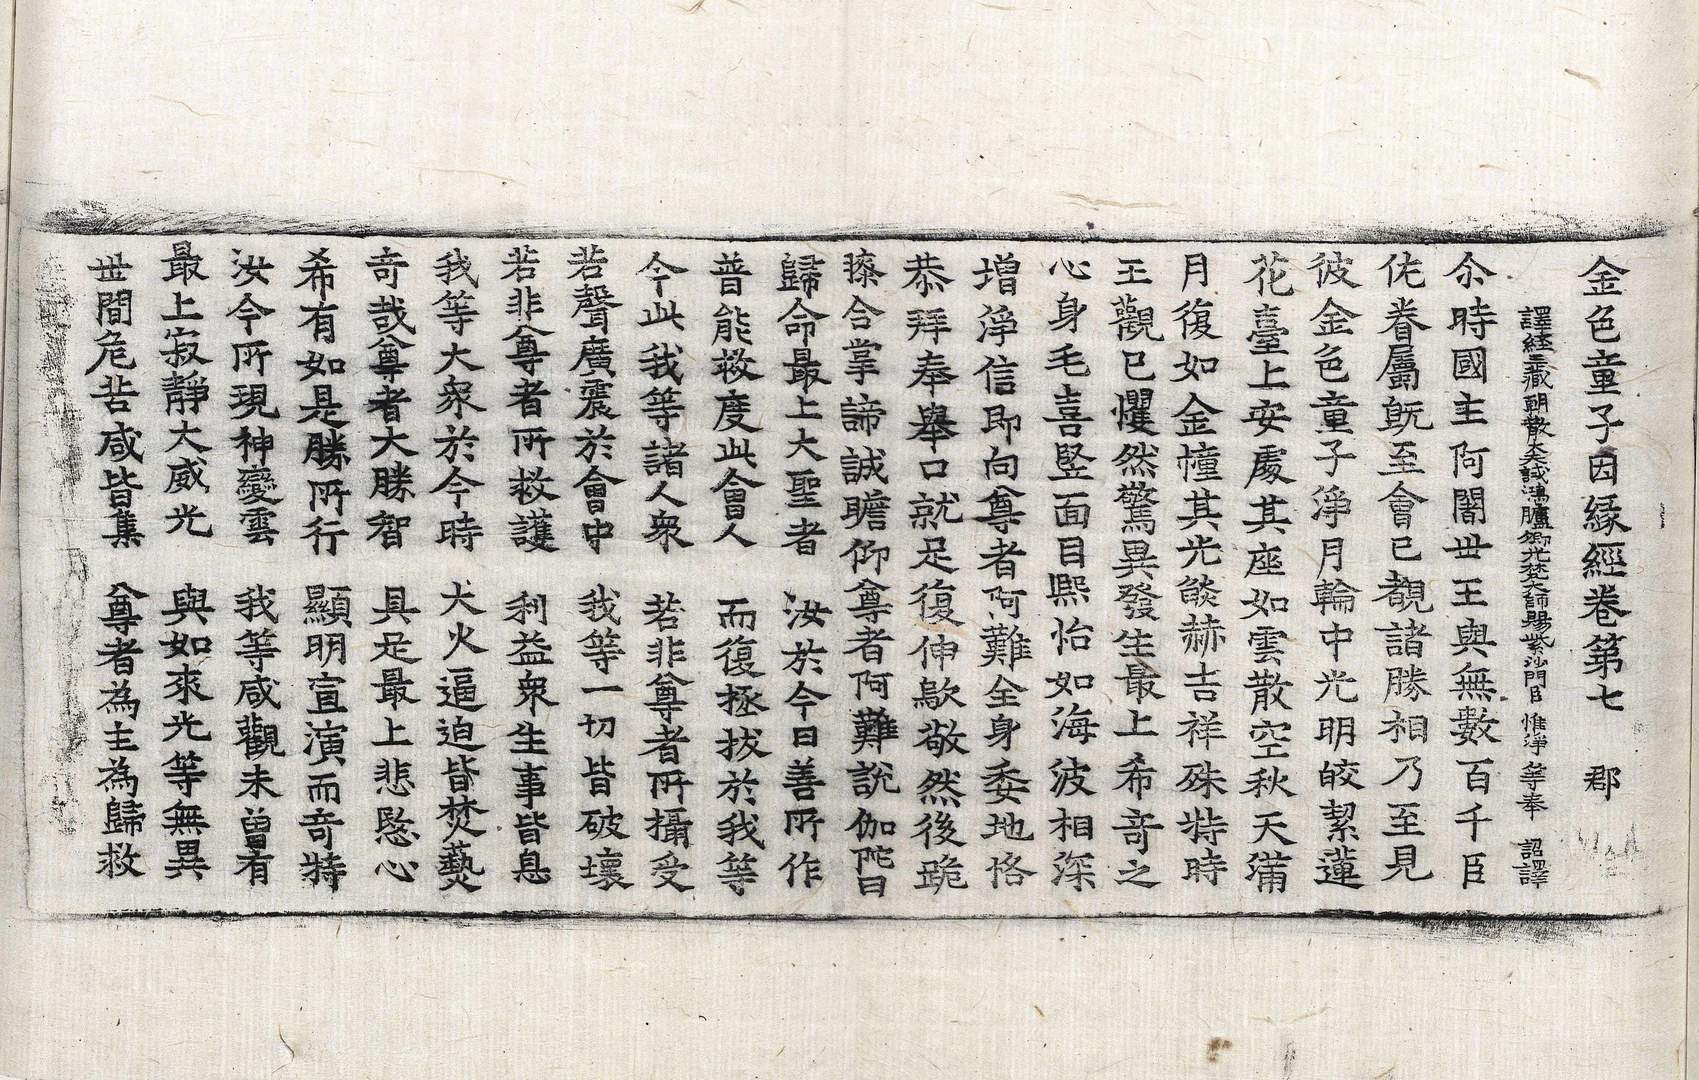 金色童子因縁經卷第七　郡
譯經三藏朝散大夫試鴻臚卿光梵大師賜紫沙門臣　惟淨　等奉　詔譯
尒時國主阿闍世王與無數百千臣
佐眷屬旣至會已覩諸勝相乃至見
彼金色童子淨月輪中光明皎絜蓮
花臺上安處其座如雲散空秋天滿
月復如金幢其光燄赫吉祥殊特時
王觀已懼然驚異發生最上希奇之
心身毛喜竪面目熙怡如海波相深
增淨信即向尊者阿難全身委地恪
恭拜奉舉口就足復伸歎敬然後跪
膝合掌諦誠瞻仰尊者阿難說伽陀曰
歸命最上大聖者　汝於今日善所作
普能救度此會人　而復拯拔於我等
今此我等諸人衆　若非尊者所攝受
苦聲廣震於會中　我等一切皆破壞
若非尊者所救護　利益衆生事皆息
我等大衆於今時　大火逼迫皆焚爇
奇哉尊者大勝智　具足最上悲愍心
希有如是勝所行　顯明宣演而奇特
汝今所現神變雲　我等咸觀未曽有
最上寂靜大威光　與如來光等無異
世間危苦咸皆集　尊者為主為歸救